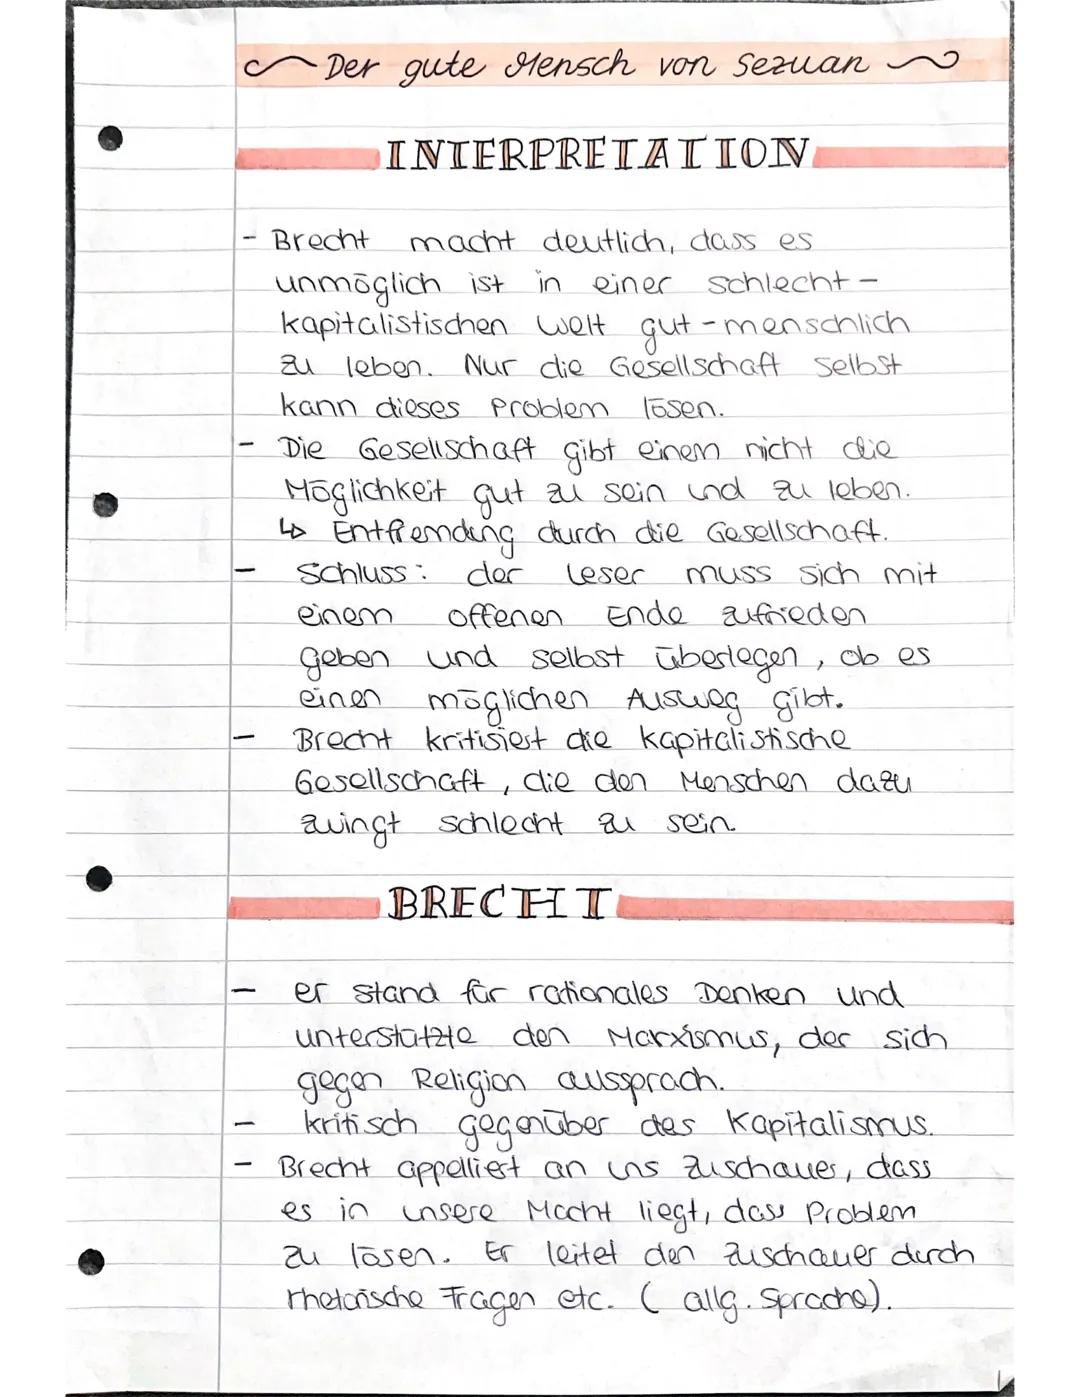 Der gute Mensch von Sezuan
INTERPRETATION
- Brecht macht deutlich, dass es
unmöglich ist in einer schlecht-
kapitalistischen Welt gut-menschlich
zu leben. Nur die Gesellschaft selbst
kann dieses Problem lösen.
- Die Gesellschaft gibt einem nicht die
Möglichkeit gut zu sein und zu leben.
↳ Entfremdung durch die Gesellschaft.
- Schluss: der Leser muss sich mit
einem offenen Ende zufrieden
geben und selbst überlegen, ob es
einen möglichen Ausweg gibt.
- Brecht kritisiert die kapitalistische
Gesellschaft, die den Menschen dazu
zwingt schlecht zu sein.
BRECHT
- er stand für rationales Denken und
unterstützte den Marxismus, der sich
gegen Religion aussprach.
- kritisch gegenüber des Kapitalismus.
- Brecht appelliert an uns Zuschauer, dass
es in unsere Macht liegt, dass Problem
zu lösen. Er leitet den Zuschauer durch
rhetorische Fragen etc. (allg. Sprache).